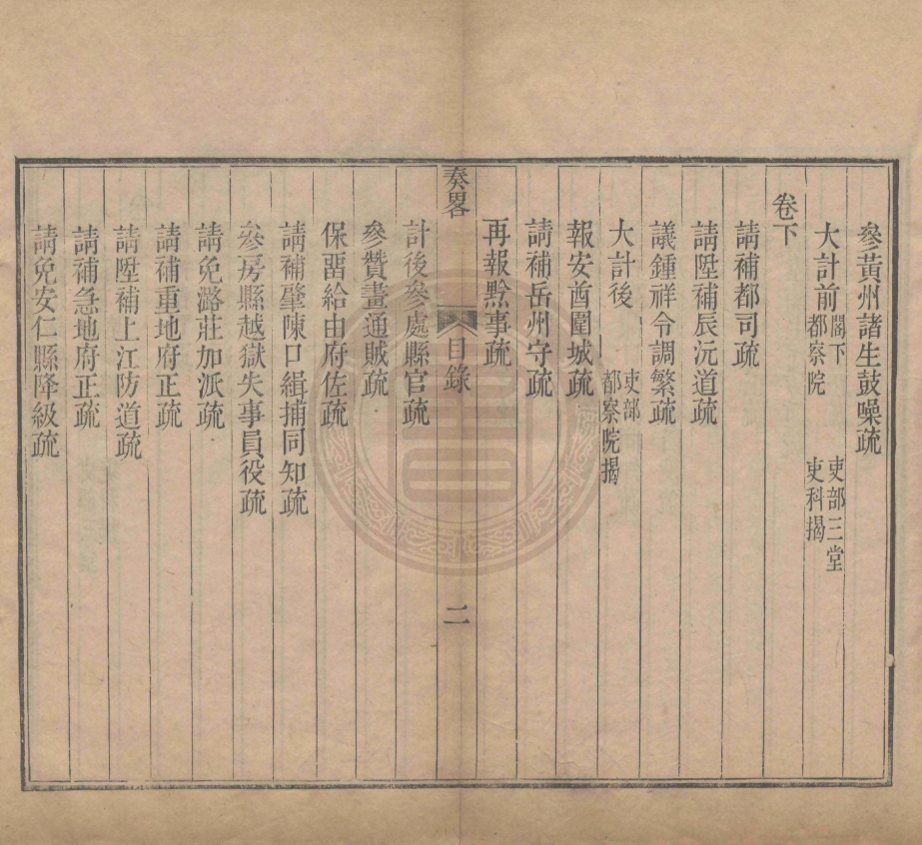 參黃州諸生鼓噪疏
大計前 閣下 吏部三堂
都察院 吏科揭
卷下
請補都司疏
請陞補辰沅道疏
議鍾祥令調繁疏
大計後 吏部
都察院揭
報安酋圍城疏
請補岳州守疏
再報黔事疏
奏畧 目錄 二
計後參處縣官疏
參贊畫通賊疏
保畱給由府佐疏
請補肇陳口緝捕同知疏
參房縣越獄失事員役疏
請免潞莊加派疏
請補重地府正疏
請陞補上江防道疏
請補急地府正疏
請免安仁縣降級疏